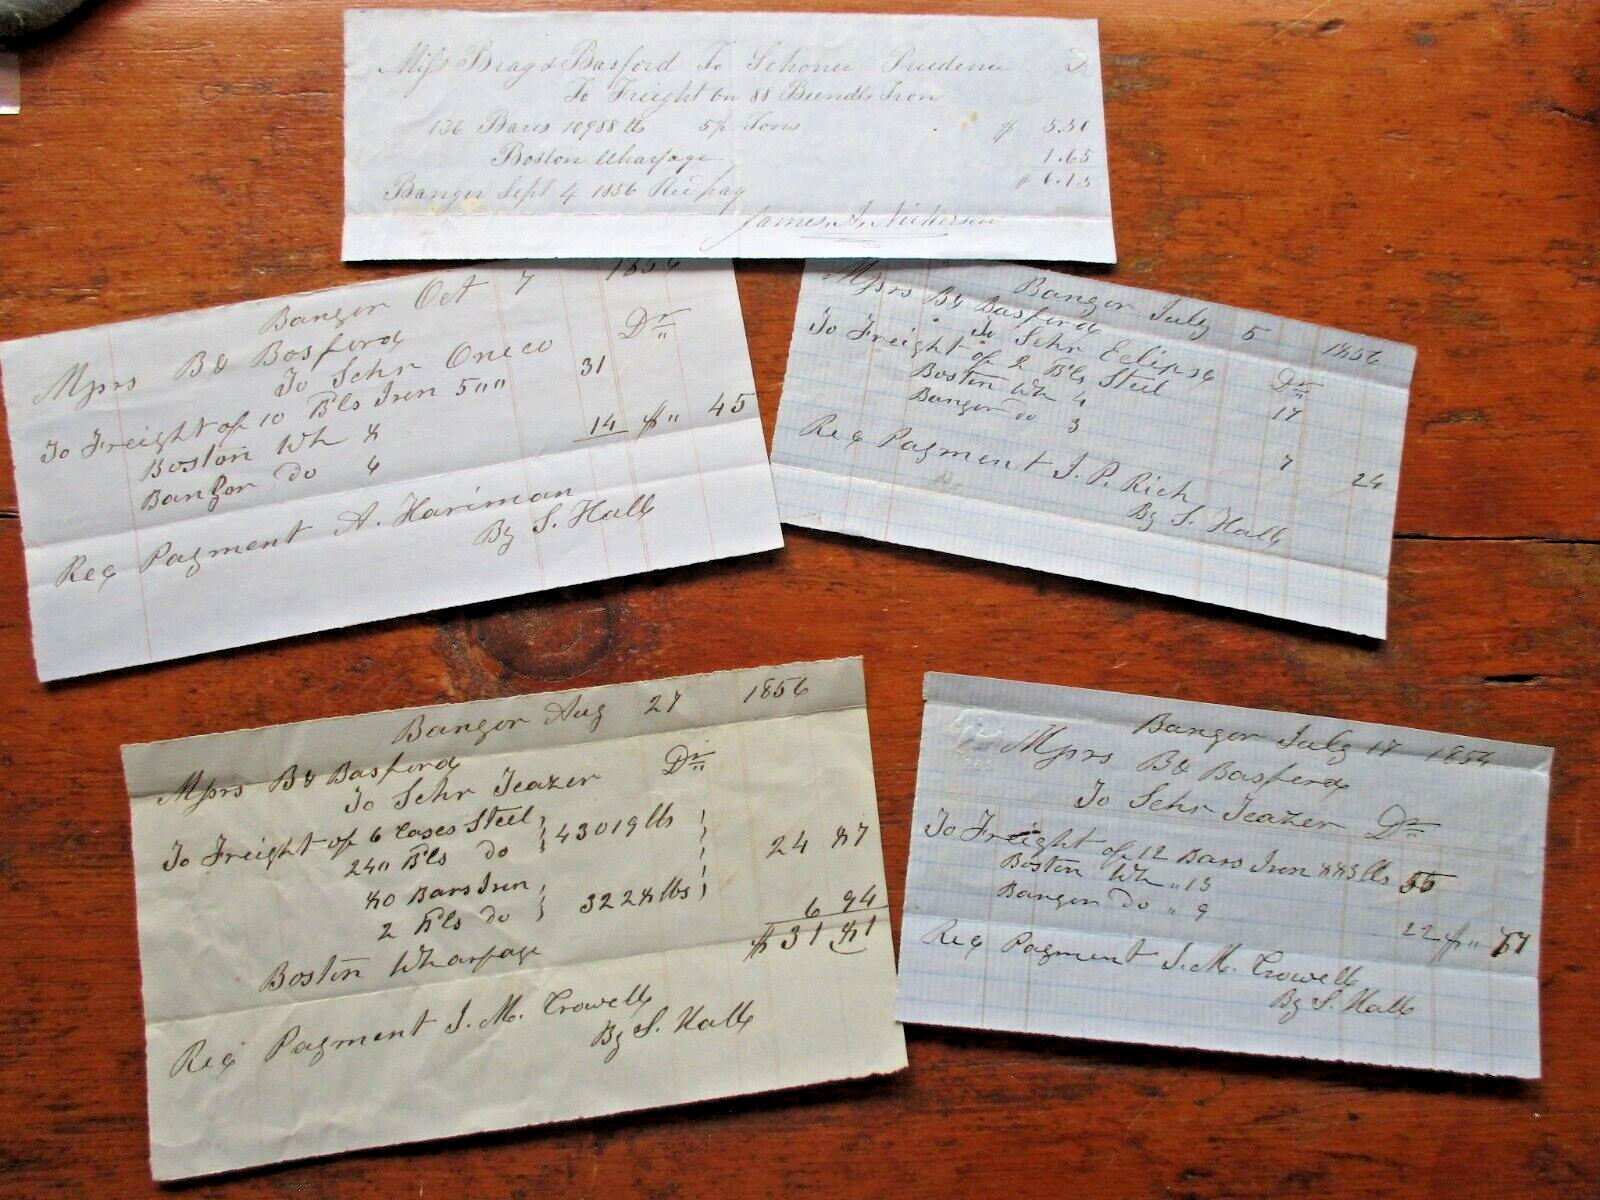 Miss Brag & Basford To Schoner Prudence Dr
To Freight on 88 Bundls Iron
136 Bars 10988 lb 5/ Tons $ 5.50
Boston Wharfage 1.65
Bangor Sept 4 1856 Recd pay $ 6.15
James A. Nickerson
Bangor Oct 7 1856
Mssrs B & Basford
To Schr Oneco Dr
To Freight of 10 Bls Iron 500 31
Boston Wh 8
Bangor do 6 14 $ " 45
Rec Payment A. Hariman
By S. Hall
Bangor July 5 1856
Mssrs B & Basford
To Schr Eclipse Dr
To Freight of 2 Bls Steel 17
Boston Wh 4
Bangor do 3 7 24
Rec Payment J. P. Rich
By S. Hall
Bangor Aug 27 1856
Mssrs B & Basford
To Schr Teazer Dr
To Freight of 6 Cases Steel
240 Bls do 43019 lbs
80 Bars Iron 24 87
2 Bls do 3228 lbs
Boston Wharfage 6 94
$ 31 81
Rec Payment J. M. Crowell
By S. Hall
Bangor July 17 1856
Mssrs B & Basford
To Schr Teazer Dr
To Freight of 12 Bars Iron 883 lbs 55
Boston Wh " 13
Bangor do " 9 22 $ " 77
Rec Payment J. M. Crowell
By S. Hall